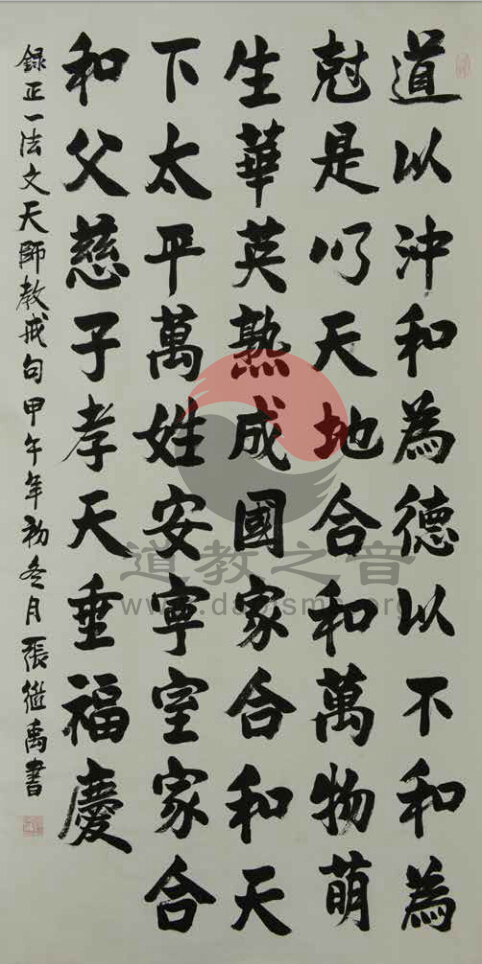 道以沖和為德以不和為
尅是以天地合和萬物萌
生華英熟成國家合和天
下太平萬姓安寧室家合
和父慈子孝天垂福慶
錄正一法文天師教戒句甲午年初冬月張繼禹書
道教之音